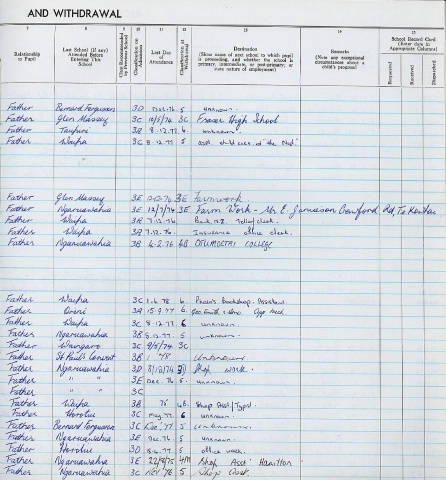 AND WITHDRAWAL
7 8 9 10 11 12 13 14 15
Relationship to Pupil
Last School (if any) Attended Before Entering This School
Class Recommended by Previous School
Classification on Admission
Last Day of Attendance
Classification on Withdrawal
Destination
(Show name of next school to which pupil is proceeding, and whether the school is primary, intermediate, or post-primary; or state nature of employment)
Remarks
(Note any exceptional circumstances about a child's progress)
School Record Card
(Enter dates in Appropriate Columns)
Requested Received Despatched
Father Bernard Fergusson 3D Dec. 76 5 unknown.
Father Glen Massey 3C 10/5/74 3C Fraser High School
Father Taupiri 3B 8.12.77 6 unknown.
Father Waipa 3C 8.12.77 5
Father Glen Massey 3E 3E Farmwork
Father Ngaruawahia 3E 12/7/74 3E Farm Work - Mr E. Jamieson Crawford Rd, Te Kowhai
Father Waipa 3B 7.12.76.
Father Waipa 3A 7.12.76. Insurance office clerk.
Father Ngaruawahia 3B 4.2.76 4B OTUMOETAI COLLEGE
Father Waipa 3C 1.6.78 6 Bookshop. Assistant
Father Orini 3A 15.9.77 6
Father Waipa 3C 8.12.77 6 unknown.
Father Ngaruawahia 3B 8.12.77. 5 unknown.
Father 3C 9/5/74 3C
Father St Paul's Convent 3B Unknown
Father Ngaruawahia 3D 3D Shop work.
Father " " 3E Dec. 76 5. unknown.
Father " " 3C
Father Waipa 3B 76 Shop Asst/Typist
Father Horotiu 3C May. 77 6 unknown.
Father Bernard Fergusson 3C Dec. 77 5 unknown.
Father Ngaruawahia 3E Dec 76 5 unknown
Father Horotiu 3D 8.12.77 5 office work.
Father Ngaruawahia 3E 22/8/75 4M Shop Asst Hamilton
Father Ngaruawahia 3C Nov 76 5 Shop Asst.